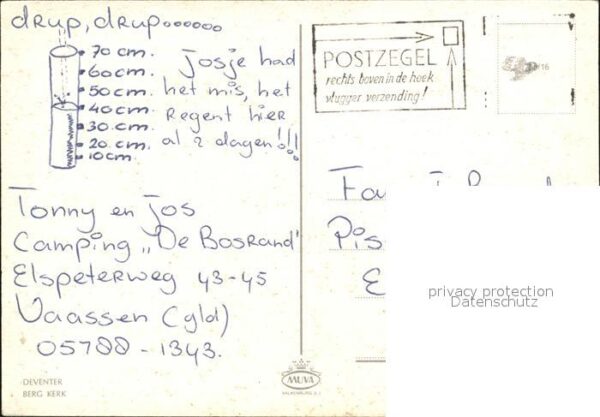 drup, drup.......
70 cm. Josje had
60 cm.
50 cm. het mis, het
40 cm. Regent hier
30 cm.
20 cm. al 2 dagen!!!
10 cm.
Tonny en Jos
Camping „De Bosrand"
Elspeterweg 43-45
Vaassen (gld)
05788-1343.
DEVENTER
BERG KERK
POSTZEGEL
rechts boven in de hoek
vlugger verzending!
16
Fa
Pis
E
privacy protection
Datenschutz
MUVA
VALKENBURG